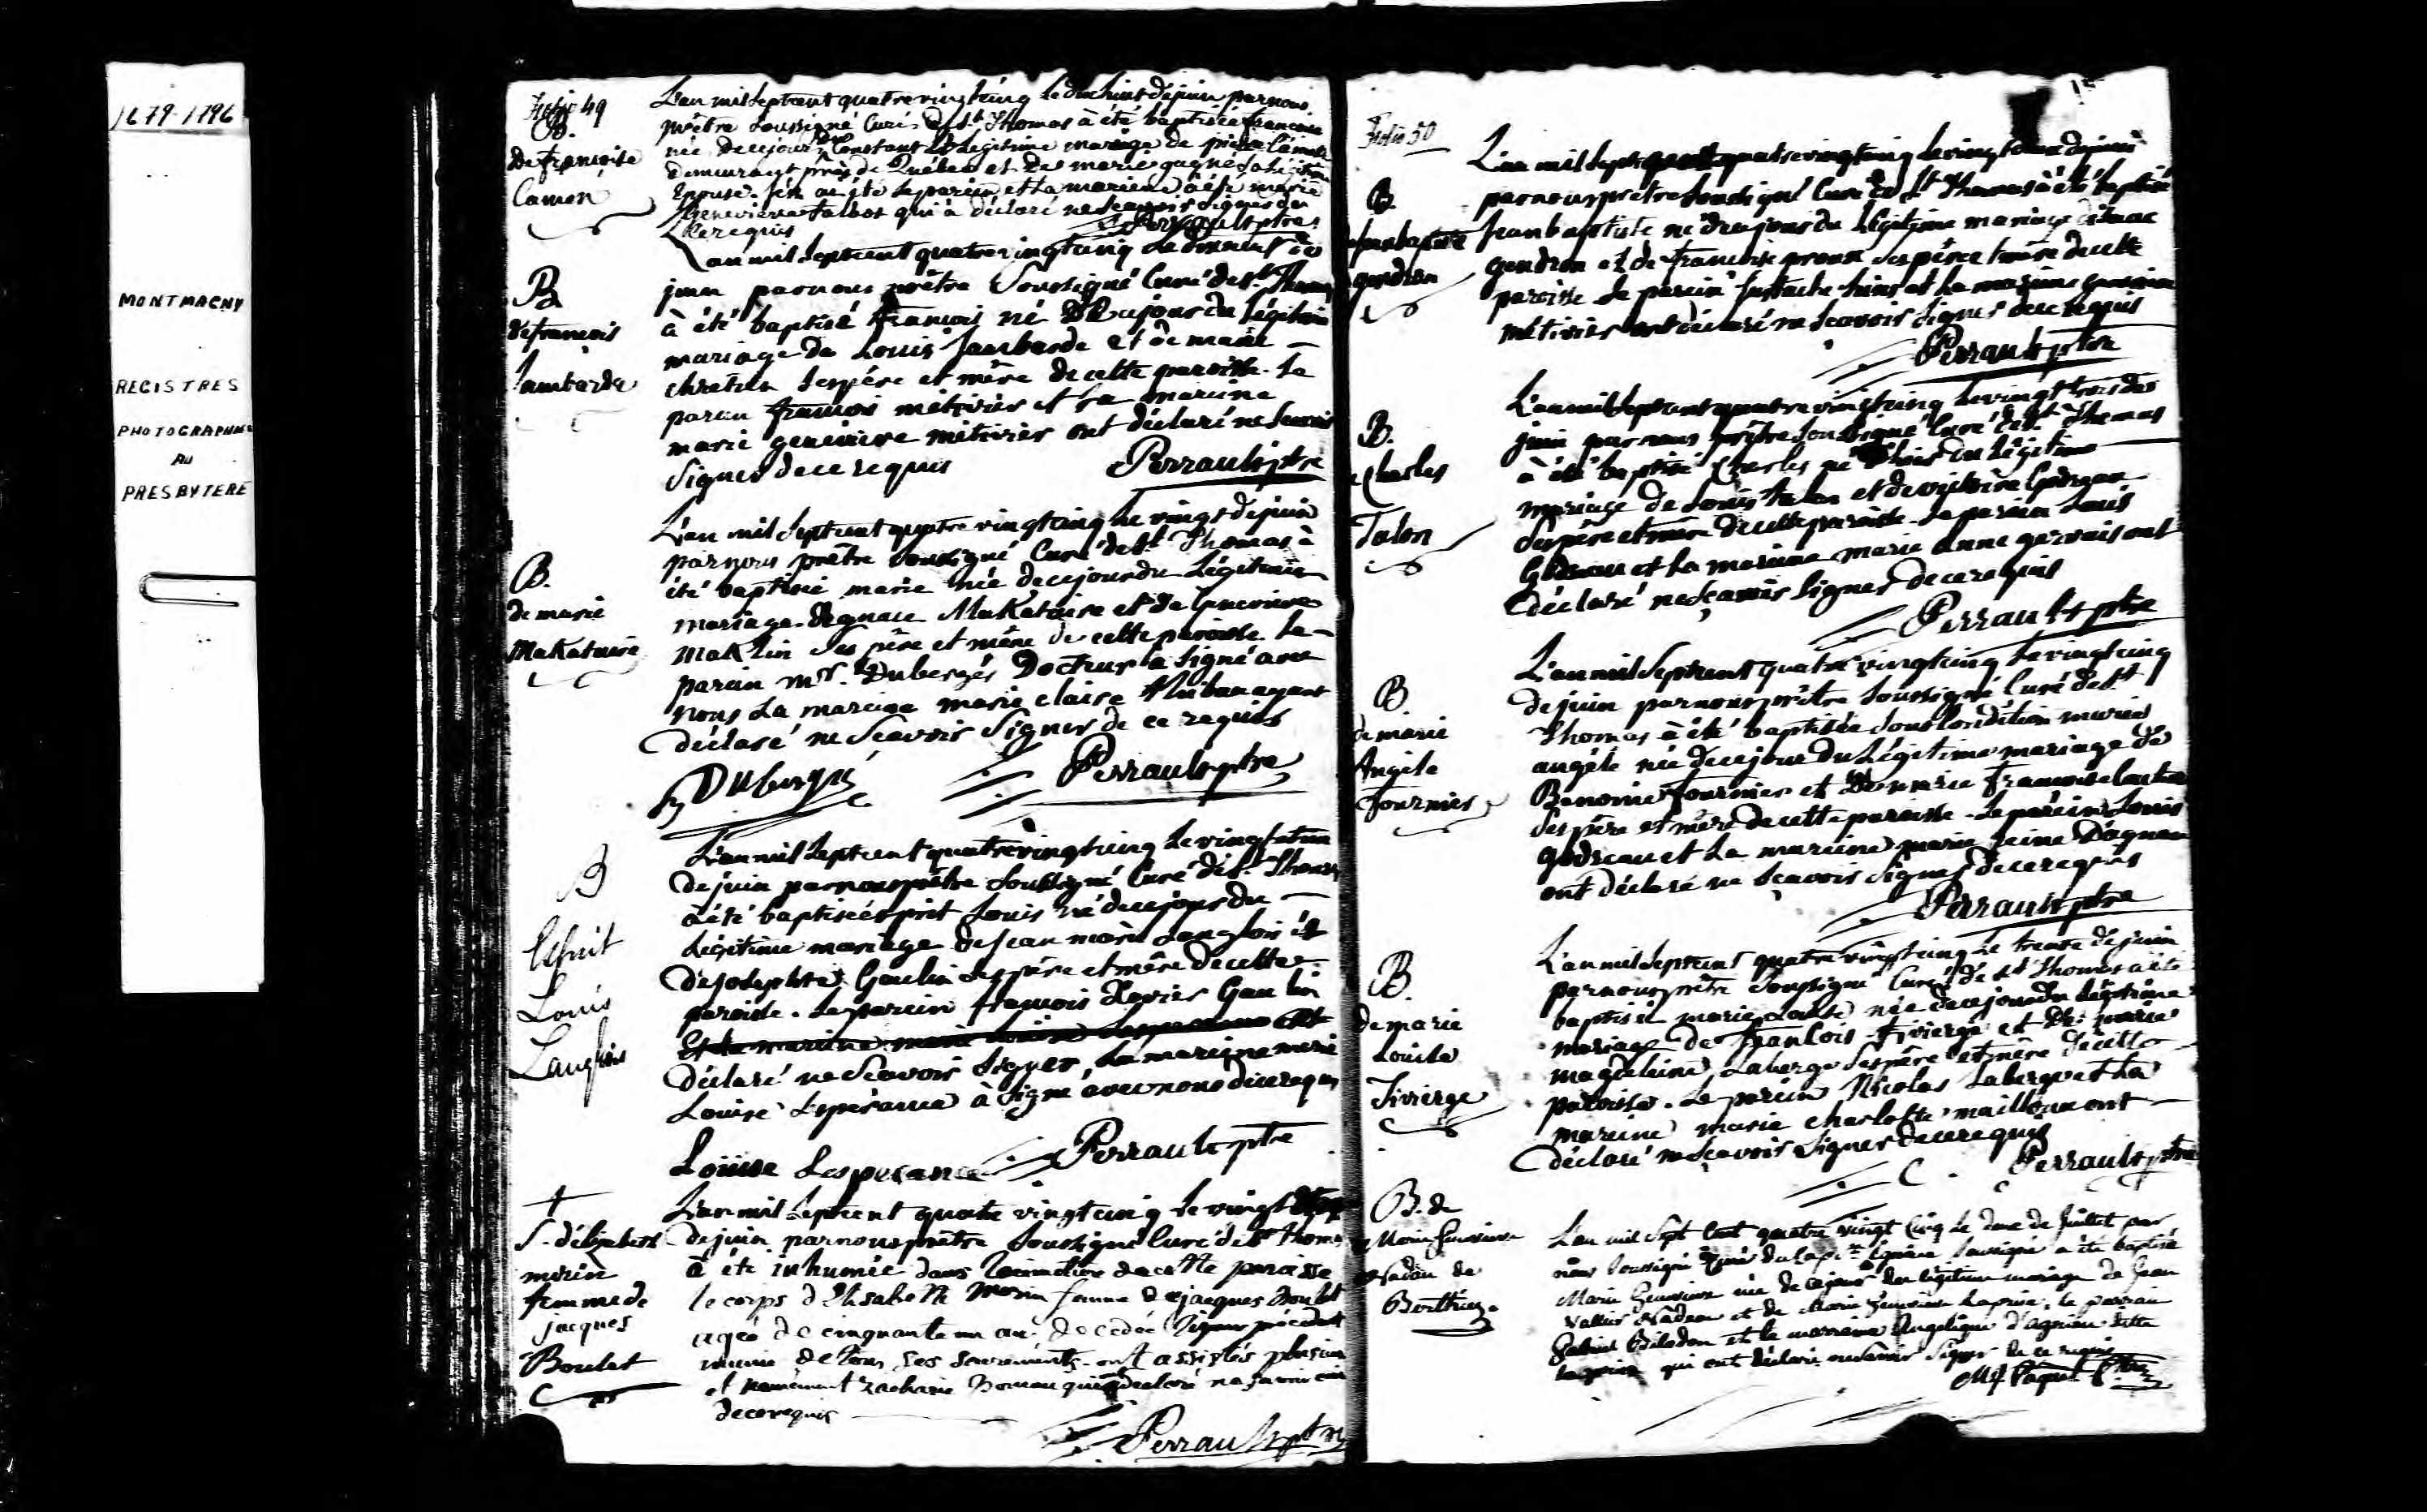 1679-1796
MONTMAGNY
REGISTRES
PHOTOGRAPHIÉS
AU
PRESBYTERE
Folio 49
B.
De françoise
Camon
L'an mil Sept cent quatre vingt cinq le dix huit de juin par nous
prêtre soussigné Curé de St Thomas à été baptisée francoise
née de ce jour du légitime mariage de pierre
demeurant près de Québec et de marie gagné sa légitime
Epouse. le parein et la mareine à été marie
Genevieve talbot qui à déclaré ne Scavoir Signer de
ce requis Perrault ptre
B
de francois
Jambarde
L'an mil Sept cent quatre vingt cinq le dixneuf de
juin par nous prêtre Soussigné Curé de St. Thomas
à été baptisé francois né De ce jour du légitime
mariage de Louis Jambarde et de marie
chretien Ses père et mère de cette paroisse. Le
parein francois métivier et La mareine
marie genevieve métivier ont déclaré ne Scavoir
Signer de ce requis Perrault ptre
B.
de marie
MaKataire
L'an mil Sept cent quatre vingt cinq le vingt de juin
par nous prêtre soussigné Curé de St Thomas à
été baptisée marie née de ce jour du Légitime
mariage d'ignace MaKataire et de Genevieve
maKlin Ses père et mère de cette paroisse. Le
parein mr. Dubergés Docteur à Signé avec
nous La mareine marie claire ayant
déclaré ne Scavoir Signer de ce requis
Dubergés Perrault ptre
B
Esprit
Louis
Langlois
L'an mil Sept cent quatre vingt cinq le vingt et un
de juin par nous prêtre Soussigné Curé de St. Thomas
à été baptisé esprit Louis né de ce jour du
Légitime mariage de jean marie Langlois et
de josephte Gaulin Ses père et mère de cette
paroisse. Le parein francois Xavier Gaulin
Et la mareine marie Louise
déclaré ne Scavoir Signer, La mareine marie
Louise Lespérance à Signé avec nous de ce requis
Louise Lesperance Perrault ptre
S. d'élizabeth
morin
femme de
jacques
Boulet
L'an mil Sept cent quatre vingt cinq le vingt
de juin par nous prêtre Soussigné Curé de St Thomas
à été inhumée dans le cimetiere de cette paroisse
le corps d'Elisabeth Morin femme de jacques Boulet
agée de cinquante un an decedée le jour precedent
munie de tous ses sacrements. ont assistés plusieurs
et nomément Zacharie qui a declaré ne savoir
de ce requis
Perrault ptre
Folio 50
B.
jean baptiste
gendron
L'an mil Sept cent quatre vingt cinq le vingt de juin
par nous prêtre Soussigné Curé de St Thomas à été baptisé
Jean baptiste né de ce jour du légitime mariage d'isaac
gendron et de francoise proux Ses père et mère de cette
paroisse Le parein Eustache et La mareine genevieve
métivier ont déclaré ne Scavoir Signer de ce requis
Perrault ptre
B.
de Charles
Talon
L'an mil Sept cent quatre vingt cinq le vingt trois de
juin par nous prêtre Soussigné Curé de St. Thomas
à été baptisé Charles né d'hier du légitime
mariage de Louis talon et de victoire Godreau
Ses père et mère de cette paroisse. Le parein Louis
Godreau et La mareine marie anne gervais ont
déclaré ne Scavoir Signer de ce requis
Perrault ptre
B.
de marie
Angéle
Fournier
L'an mil Sept cent quatre vingt cinq le vingt cinq
de juin par nous prêtre Soussigné Curé de St
Thomas à été baptisée sous Condition marie
angéle née de ce jour du Légitime mariage de
Benonie fournier et de marie francoise
Ses père et mère de cette paroisse. Le parein Louis
godreau et La mareine marie reine Dagneau
ont déclaré ne Scavoir Signer de ce requis
Perrault ptre
B.
de marie
Louise
Tivierge
L'an mil Sept cent quatre vingt cinq le trente de juin
par nous prêtre Soussigné Curé de St Thomas à été
baptisée marie Louise née de ce jour du Légitime
mariage de francois Tivierge et de marie
magdeleine Laberge Ses père et mère de cette
paroisse. Le parein Nicolas Laberge et La
mareine marie charlotte mailloux ont
déclaré ne Scavoir Signer de ce requis
Perrault ptre
B. de
Marie Genevieve
Nadau de
Berthier
L'an mil Sept Cent quatre vingt Cinq le douze de Juillet par
nous Soussigné a été baptisé
Marie Genevieve née de ce jour du légitime mariage de Jean
Vallier Nadeau et de Marie Genevieve Laprise, le parrain
Gabriel Bilodeau et la marreine Angelique d'agneau dite
laprise qui ont déclaré ne savoir Signer de ce requis
Paquet Ptre